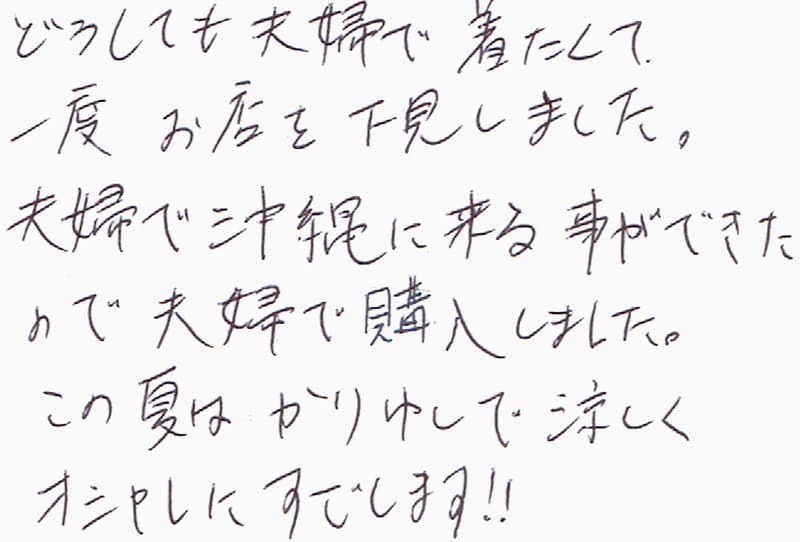 どうしても夫婦で着たくて
一度お店を下見しました。
夫婦で沖縄に来る事ができた
ので夫婦で購入しました。
この夏はかりゆしで涼しく
オシャレにすごします!!